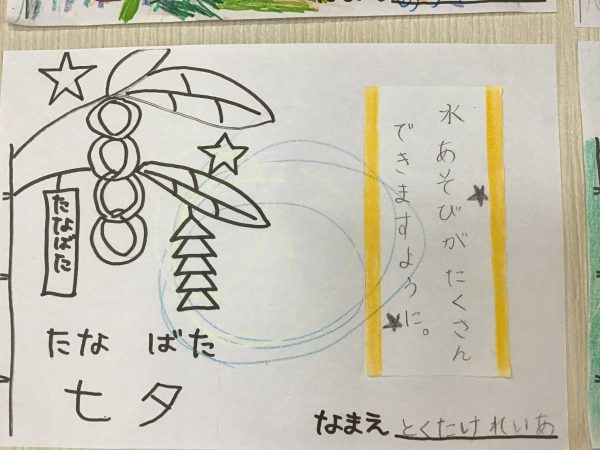 水あそびがたくさん
できますように。
たなばた
たなばた
七夕
なまえ とくたけ れいあ